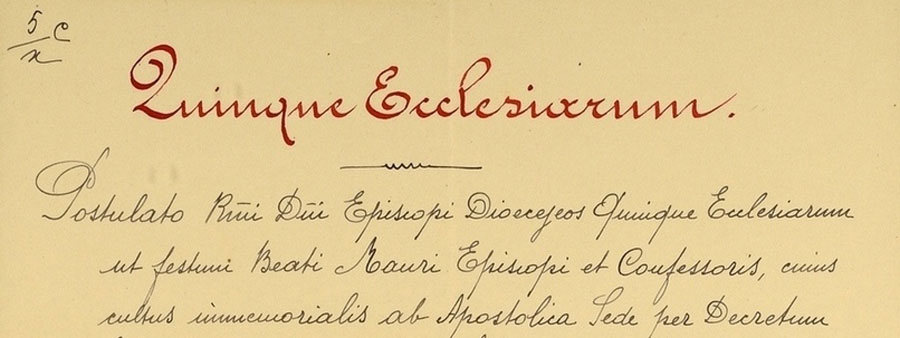 5 c
x
Quinque Ecclesiarum.
Postulato Rm̃i Dñi Episcopi Dioeceseos Quinque Ecclesiarum
ut festum Beati Mauri Episcopi et Confessoris, cuius
cultus immemorialis ab Apostolica Sede per Decretum